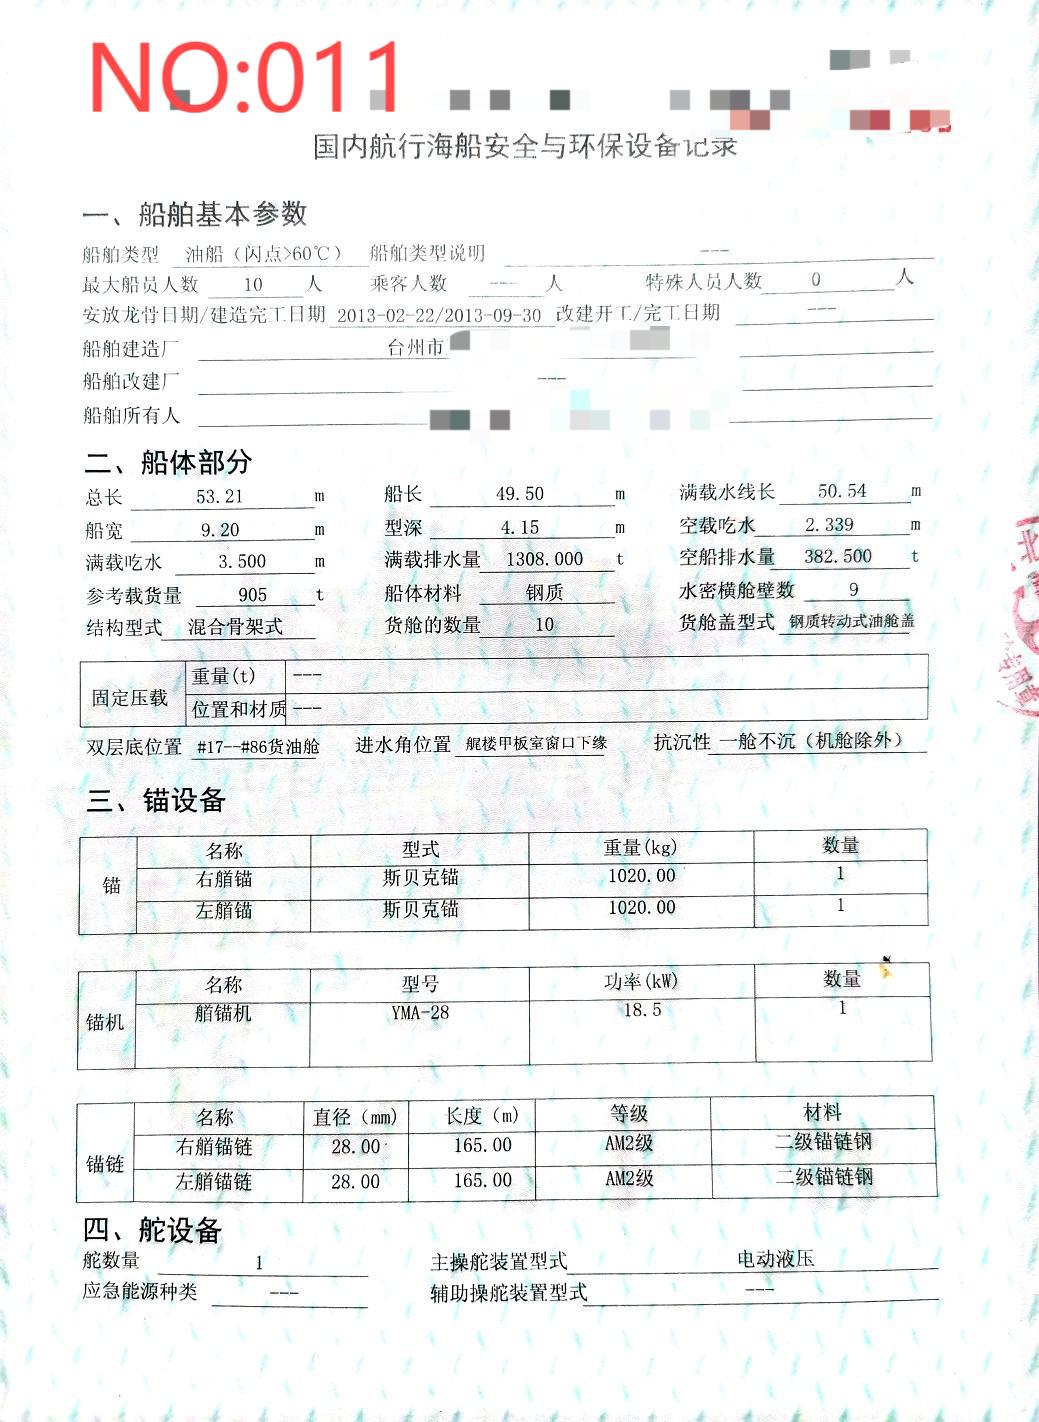 NO:011
国内航行海船安全与环保设备记录
一、船舶基本参数
船舶类型 油船（闪点>60℃） 船舶类型说明 ---
最大船员人数 10 人 乘客人数 --- 人 特殊人员人数 0 人
安放龙骨日期/建造完工日期 2013-02-22/2013-09-30 改建开工/完工日期 ---
船舶建造厂 台州市
船舶改建厂 ---
船舶所有人
二、船体部分
总长 53.21 m 船长 49.50 m 满载水线长 50.54 m
船宽 9.20 m 型深 4.15 m 空载吃水 2.339 m
满载吃水 3.500 m 满载排水量 1308.000 t 空船排水量 382.500 t
参考载货量 905 t 船体材料 钢质 水密横舱壁数 9
结构型式 混合骨架式 货舱的数量 10 货舱盖型式 钢质转动式油舱盖
固定压载 重量(t) ---
位置和材质 ---
双层底位置 #17--#86货油舱 进水角位置 艉楼甲板室窗口下缘 抗沉性 一舱不沉（机舱除外）
三、锚设备
锚 名称 型式 重量(kg) 数量
右艏锚 斯贝克锚 1020.00 1
左艏锚 斯贝克锚 1020.00 1
锚机 名称 型号 功率(kW) 数量
艏锚机 YMA-28 18.5 1
锚链 名称 直径（mm) 长度（m) 等级 材料
右艏锚链 28.00 165.00 AM2级 二级锚链钢
左艏锚链 28.00 165.00 AM2级 二级锚链钢
四、舵设备
舵数量 1 主操舵装置型式 电动液压
应急能源种类 --- 辅助操舵装置型式 ---